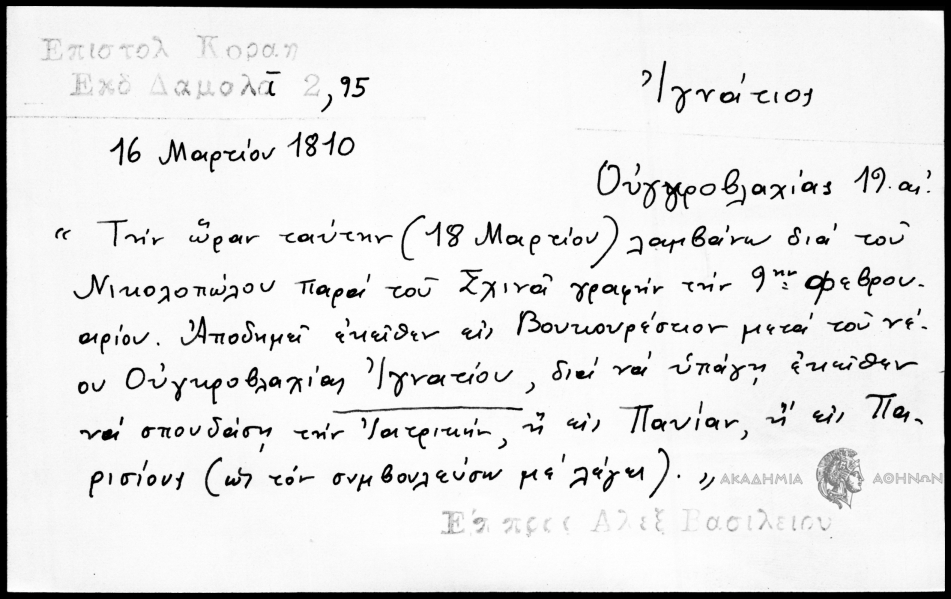 Επιστολ Κοραη
Εκδ Δαμαλᾶ 2, 95
Ἰγνάτιος
16 Μαρτίου 1810
Οὑγγροβλαχίας 19. αἰ.
“ Τὴν ὥραν ταύτην (18 Μαρτίου) λαμβάνω διὰ τοῦ
Νικολοπώλου παρὰ τοῦ Σχινᾶ γραφὴν τὴν 9ην Φεβρου-
αρίου. Ἀποδημεῖ ἐκεῖθεν εἰς Βουκουρέστιον μετὰ τοῦ νέ-
ου Οὑγκροβλαχίας Ἰγνατίου, διὰ νὰ ὑπάγῃ ἐκεῖθεν
νὰ σπουδάσῃ τὴν Ἰατρικήν, ἢ εἰς Παυίαν, ἢ εἰς Πα-
ρισίους (ὡς τὸν συμβουλεύσω μὲ λέγει). „
ΑΚΑΔΗΜΙΑ ΑΘΗΝΩΝ
Επ προς Αλεξ Βασιλειου